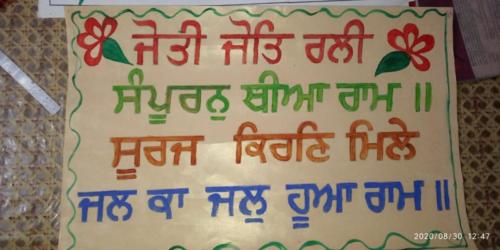 ਜੋਤੀ ਜੋਤਿ ਰਲੀ
ਸੰਪੂਰਨੁ ਥੀਆ ਰਾਮ ॥
ਸੂਰਜ ਕਿਰਣਿ ਮਿਲੇ
ਜਲ ਕਾ ਜਲੁ ਹੂਆ ਰਾਮ ॥
2020/08/30 12:47